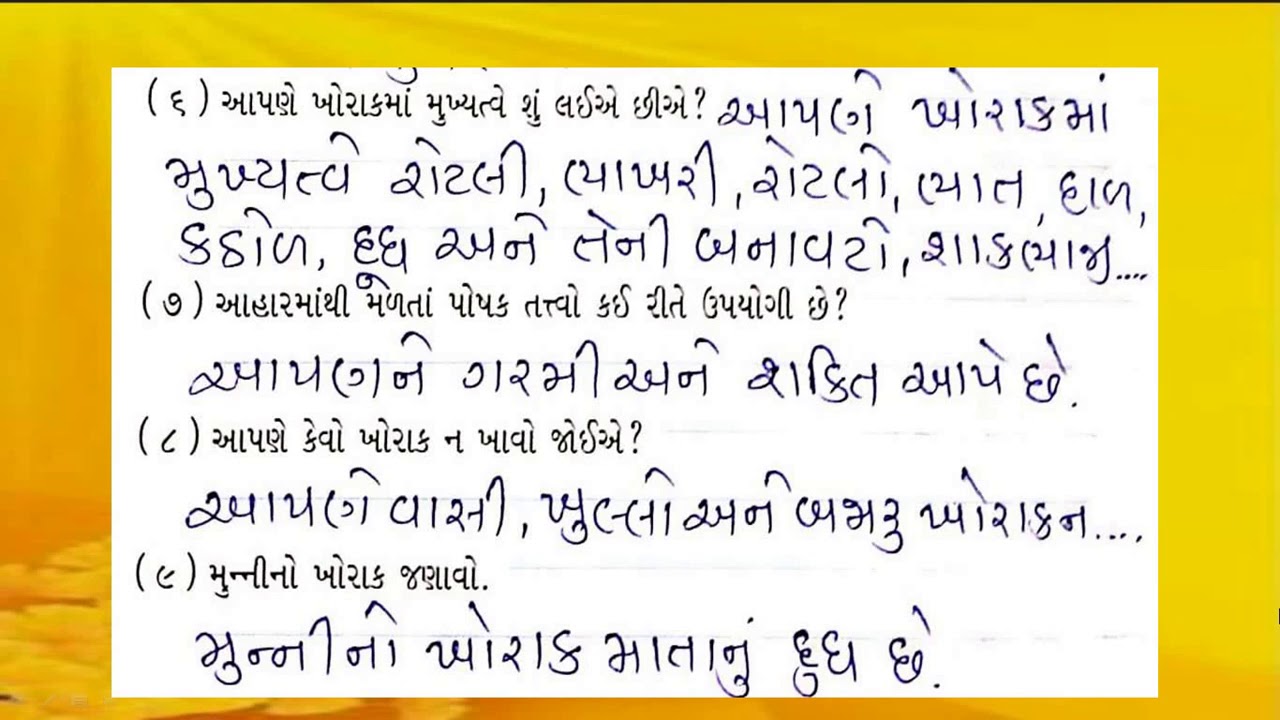 (૬) આપણે ખોરાકમાં મુખ્યત્વે શું લઈએ છીએ? આપણે ખોરાકમાં
મુખ્યત્વે રોટલી, ભાખરી, રોટલો, ભાત, દાળ,
કઠોળ, દૂધ અને તેની બનાવટો, શાકભાજી....
(૭) આહારમાંથી મળતાં પોષક તત્ત્વો કઈ રીતે ઉપયોગી છે?
આપણને ગરમી અને શકિત આપે છે.
(૮) આપણે કેવો ખોરાક ન ખાવો જોઈએ?
આપણે વાસી, ખુલ્લો અને બજારુ ખોરાક ન....
(૯) મુન્નીનો ખોરાક જણાવો.
મુન્નીનો ખોરાક માતાનું દુધ છે.